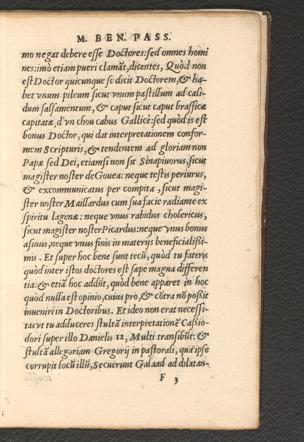 M. BEN. PASS.
mo negat debere esse Doctores: sed omnes homi
nes: imò etiam pueri clamãt, dicentes, Quòd non
est Doctor quicunque se dicit Doctorem, & ha-
bet vnum pileum sicut vnum pastillum ad cali-
dum salsamentum, & caput sicut caput brassicæ
capitatæ, d'vn chou cabus Gallicè: sed quòd is est
bonus Doctor, qui dat interpretationem confor-
mem Scripturis, & tendentem ad gloriam non
Papæ sed Dei, etiamsi non sit Sinapiuorus, sicut
magister noster de Gouea: neque testis periurus,
& excommunicatus per compita, sicut magi-
ster noster Maillardus cum sua facie radiante ex
spiritu lagenæ: neque vnus rabidus cholericus,
sicut magister noster Picardus: neque vnus bonus
asinus, neque vnus finis in materijs beneficialißi-
mis. Et super hoc bene sunt tecũ, quòd tu fateris
quòd inter istos doctores est sæpe magna differen
tia: & etiã hoc addiit, quòd bene apparet in hoc
quod nulla est opinio, cuius pro, & cõtra nõ poßit
inueniri in Doctoribus. Et ideo non erat necessi-
tas vt tu adduceres stultã interpretationẽ Caßio-
dori super illo Danielis 12, Multi transibũt: &
stultã allegoriam Gregorij in pastorali, qua ipse
corrupit locũ illũ, Secuerunt Galaad ad dilatan-
F 3